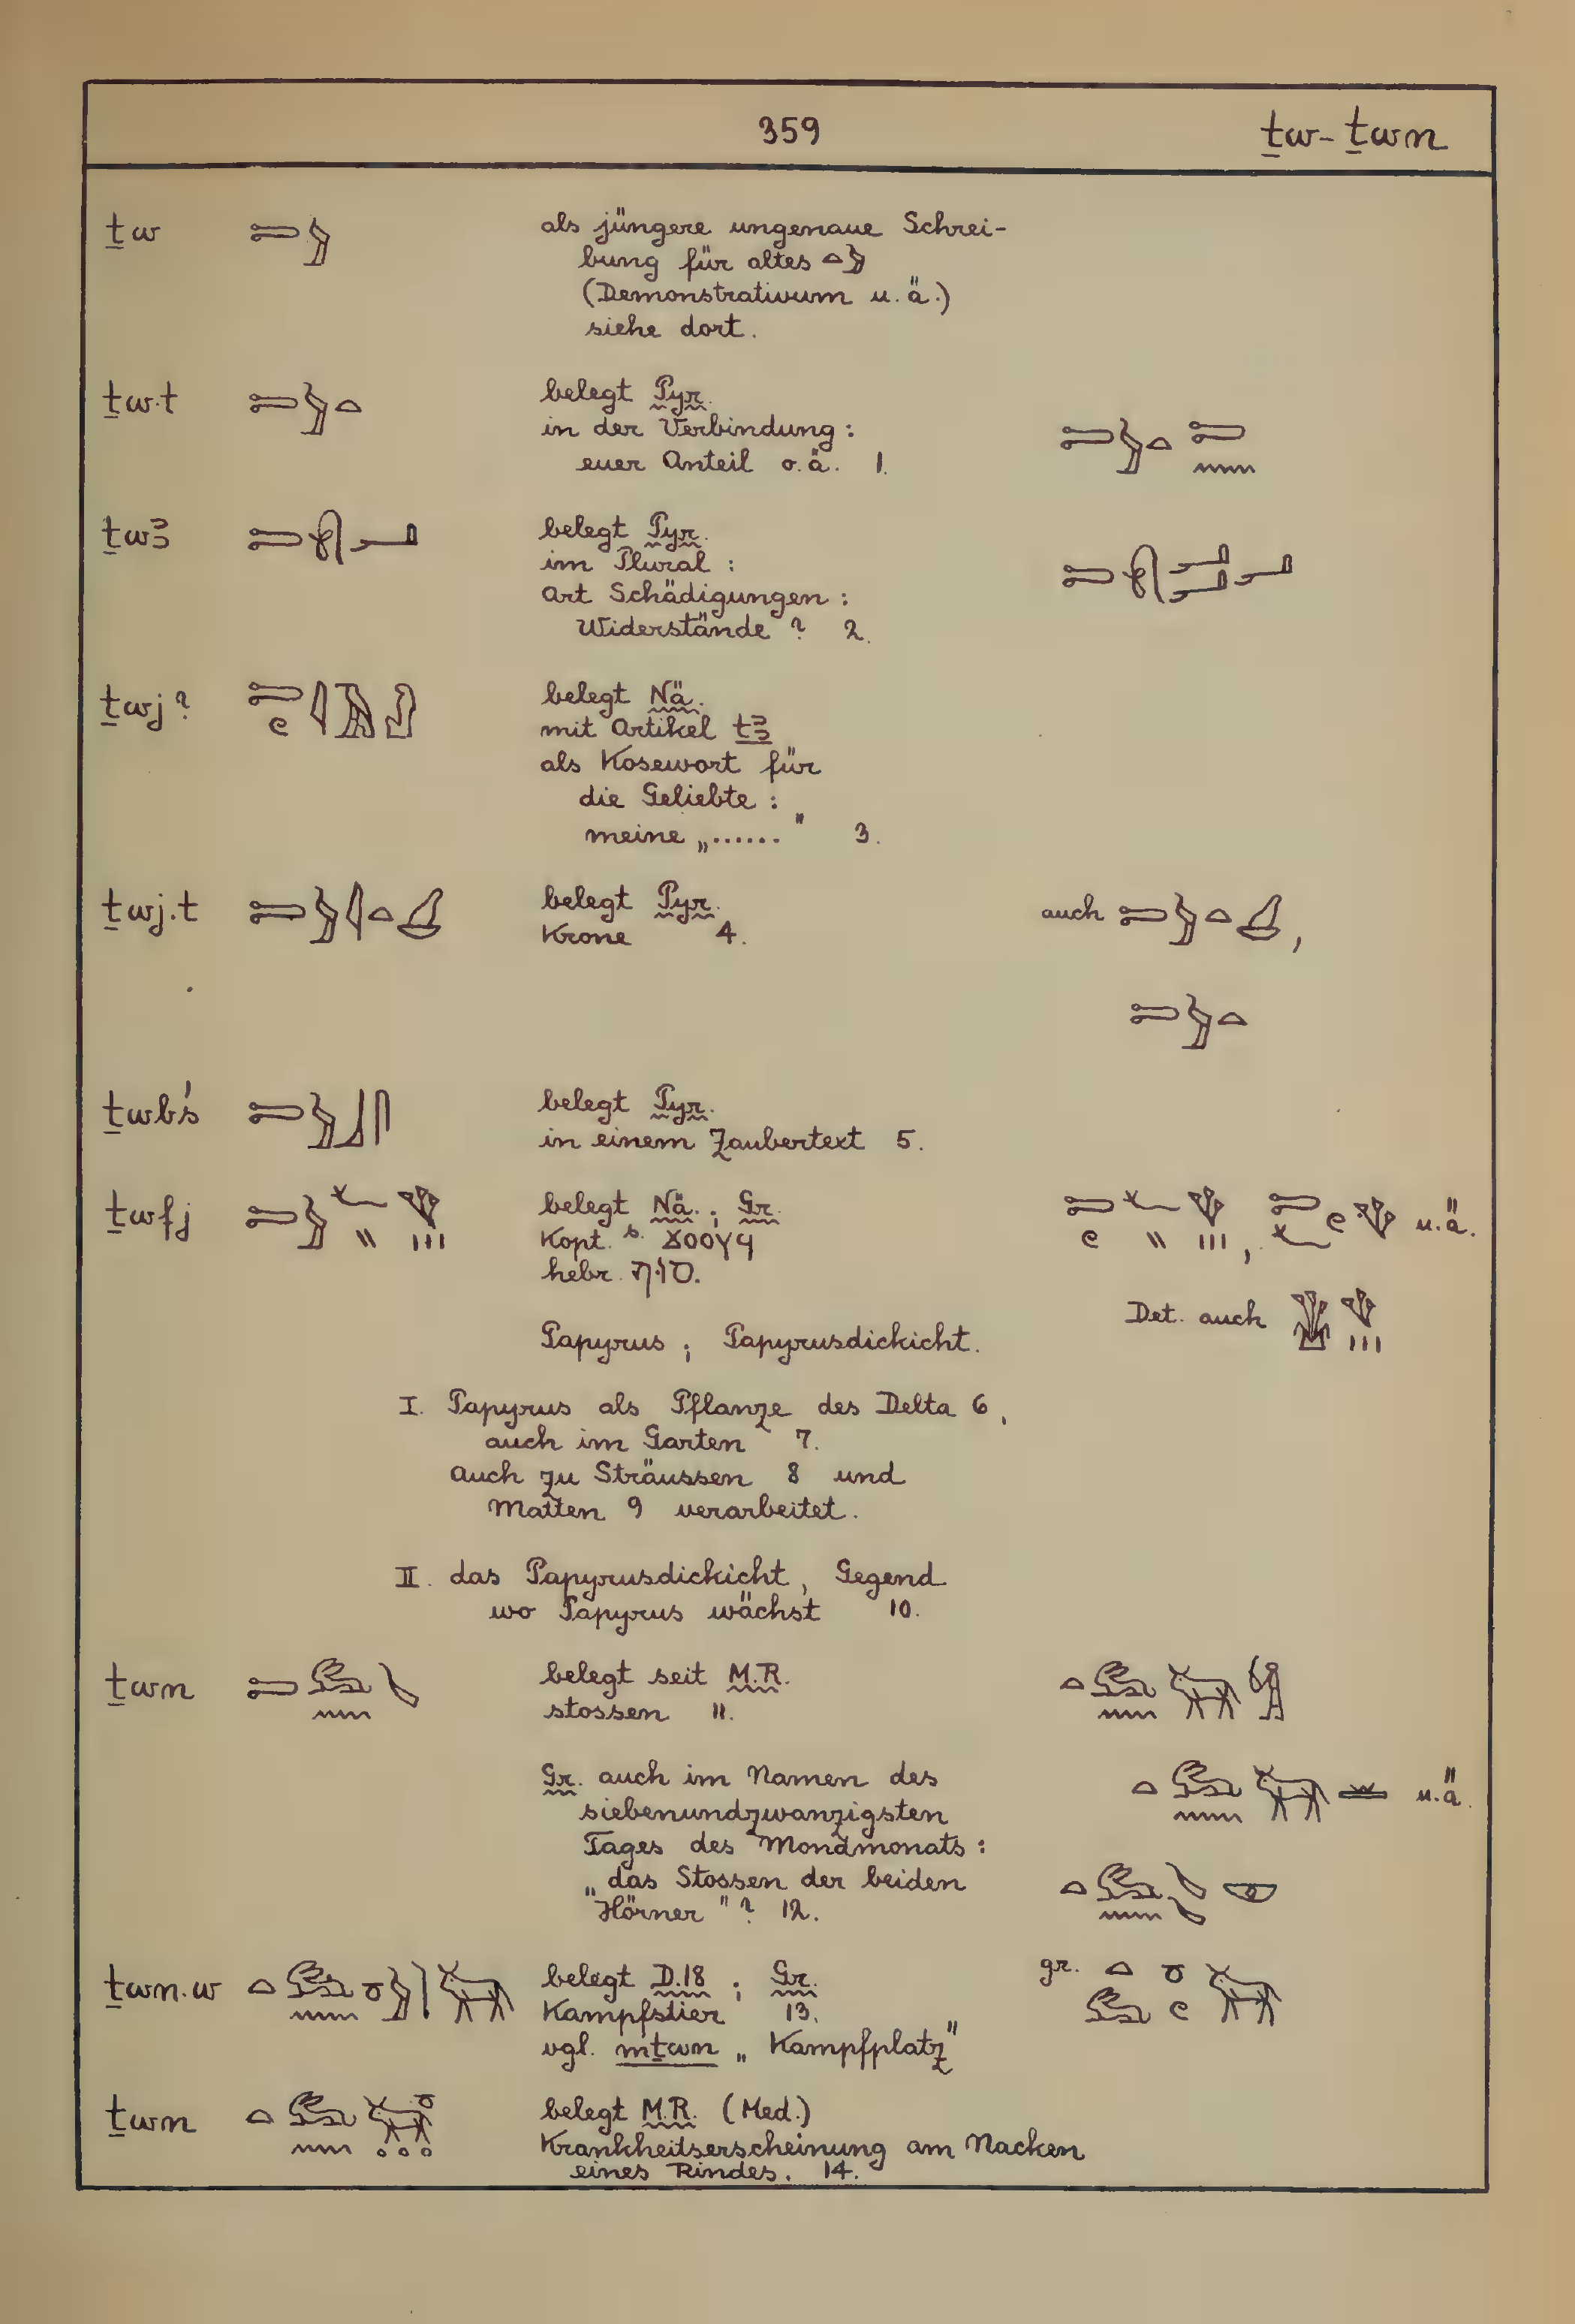 359 ṯw - ṯwn
ṯw als jüngere ungenaue Schrei-
bung für altes
(Demonstrativum u. ä.)
siehe dort.
ṯw.t belegt Pyr.
in der Verbindung:
euer Anteil o. ä. 1.
ṯwꜣ belegt Pyr.
im Plural:
Art Schädigungen:
Widerstände? 2.
ṯwj? belegt Nä.
mit Artikel tꜣ
als Kosewort für
die Geliebte:
meine „......" 3.
ṯwj.t belegt Pyr. auch
Krone 4.
ṯwbś belegt Pyr.
in einem Zaubertext 5.
ṯwfj belegt Nä.; Gr. u. ä.
Kopt. s. ϫⲟⲟⲩϥ
hebr. סוּף.
Det. auch
Papyrus; Papyrusdickicht.
I. Papyrus als Pflanze des Delta 6,
auch im Garten 7.
auch zu Sträussen 8 und
Matten 9 verarbeitet.
II. das Papyrusdickicht, Gegend
wo Papyrus wächst 10.
ṯwn belegt seit M.R.
stossen 11.
Gr. auch im Namen des u. ä.
siebenundzwanzigsten
Tages des Mondmonats:
„das Stossen der beiden
Hörner"? 12.
ṯwn.w belegt D.18; Gr. gr.
Kampfstier 13.
vgl. mṯwn „Kampfplatz"
ṯwn belegt M.R. (Med.)
Krankheitserscheinung am Nacken
eines Rindes. 14.